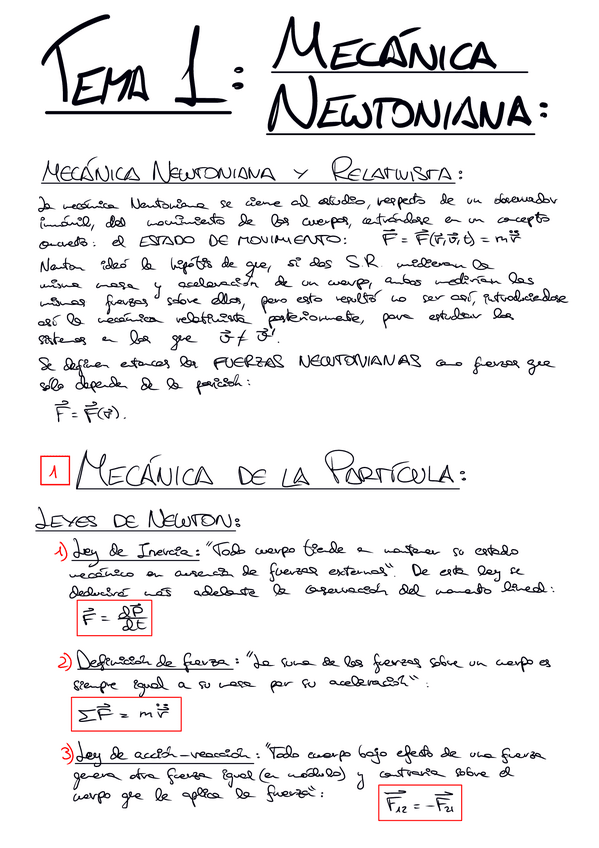 TEMA 1: MECÁNICA
NEWTONIANA:
MECÁNICA NEWTONIANA Y RELATIVISTA:
La mecánica Newtoniana se ciene al estudio, respecto de un observador
inmóvil, del movimiento de los cuerpos, centrándose en un concepto
concreto: el ESTADO DE MOVIMIENTO: F⃗ = F⃗(r⃗, v⃗, t) = m r⃗̈
Newton ideó la hipótesis de que, si dos S.R. midieran la
misma masa y aceleración de un cuerpo, ambos medirían las
mismas fuerzas sobre ellos, pero esto resultó no ser así, introduciéndose
así la mecánica relativista posteriormente, para estudiar los
sistemas en los que v⃗ ≠ v⃗'.
Se definen entonces las FUERZAS NEWTONIANAS como fuerzas que
solo dependen de la posición:
F⃗ = F⃗(r⃗).
1 MECÁNICA DE LA PARTÍCULA:
LEYES DE NEWTON:
1) Ley de Inercia: "Todo cuerpo tiende a mantener su estado
mecánico en ausencia de fuerzas externas". De esta ley se
deducirá más adelante la conservación del momento lineal:
F⃗ = dP⃗/dt
2) Definición de fuerza: "La suma de las fuerzas sobre un cuerpo es
siempre igual a su masa por su aceleración":
ΣF⃗ = m r⃗̈
3) Ley de acción-reacción: "Todo cuerpo bajo efecto de una fuerza
genera otra fuerza igual (en módulo) y contraria sobre el
cuerpo que le aplica la fuerza":
F⃗₁₂ = -F⃗₂₁